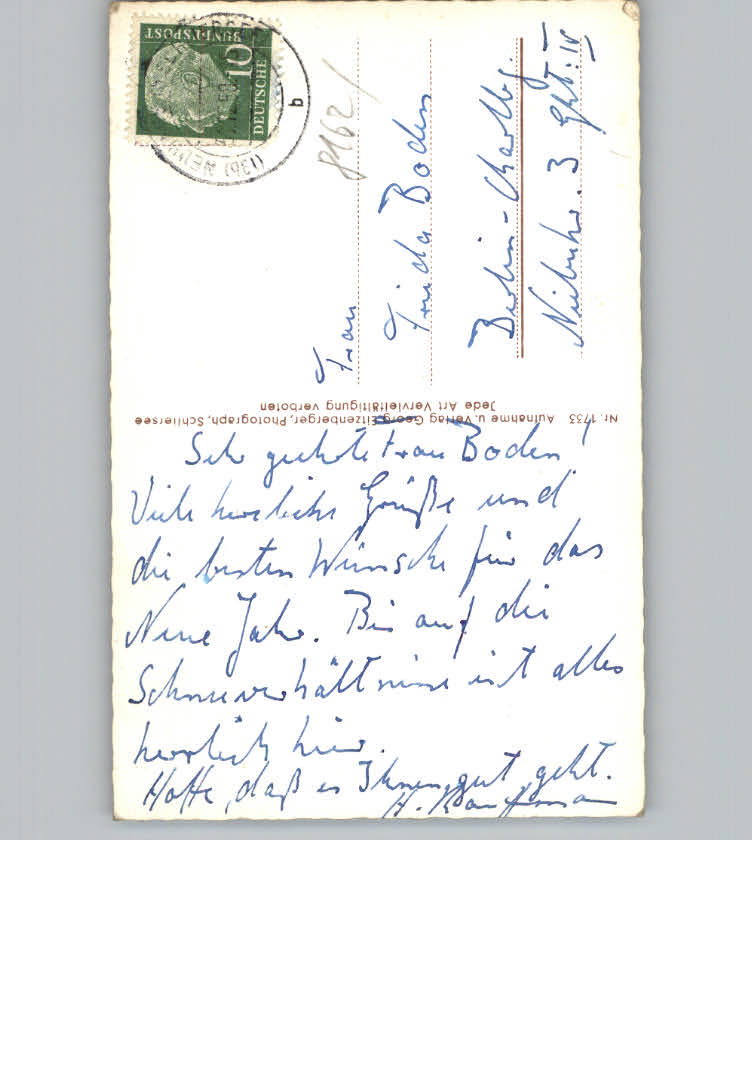 DEUTSCHE
BUNDESPOST
10
b
81621
Frau
Frida Boden
Berlin-Charlbg.
Niebuhr. 3 Ght: IV
Nr. 1733 Aufnahme u. Verlag Georg Eitzenberger, Photograph, Schliersee
Jede Art Vervielfältigung verboten
Sehr geehrte Frau Boden!
Viele herzliche Grüße und
die besten Wünsche für das
Neue Jahr. Bis auf die
Schneeverhältnisse ist alles
herrlich hier.
Hoffe, daß es Ihnen gut geht.
H. Kaufmann